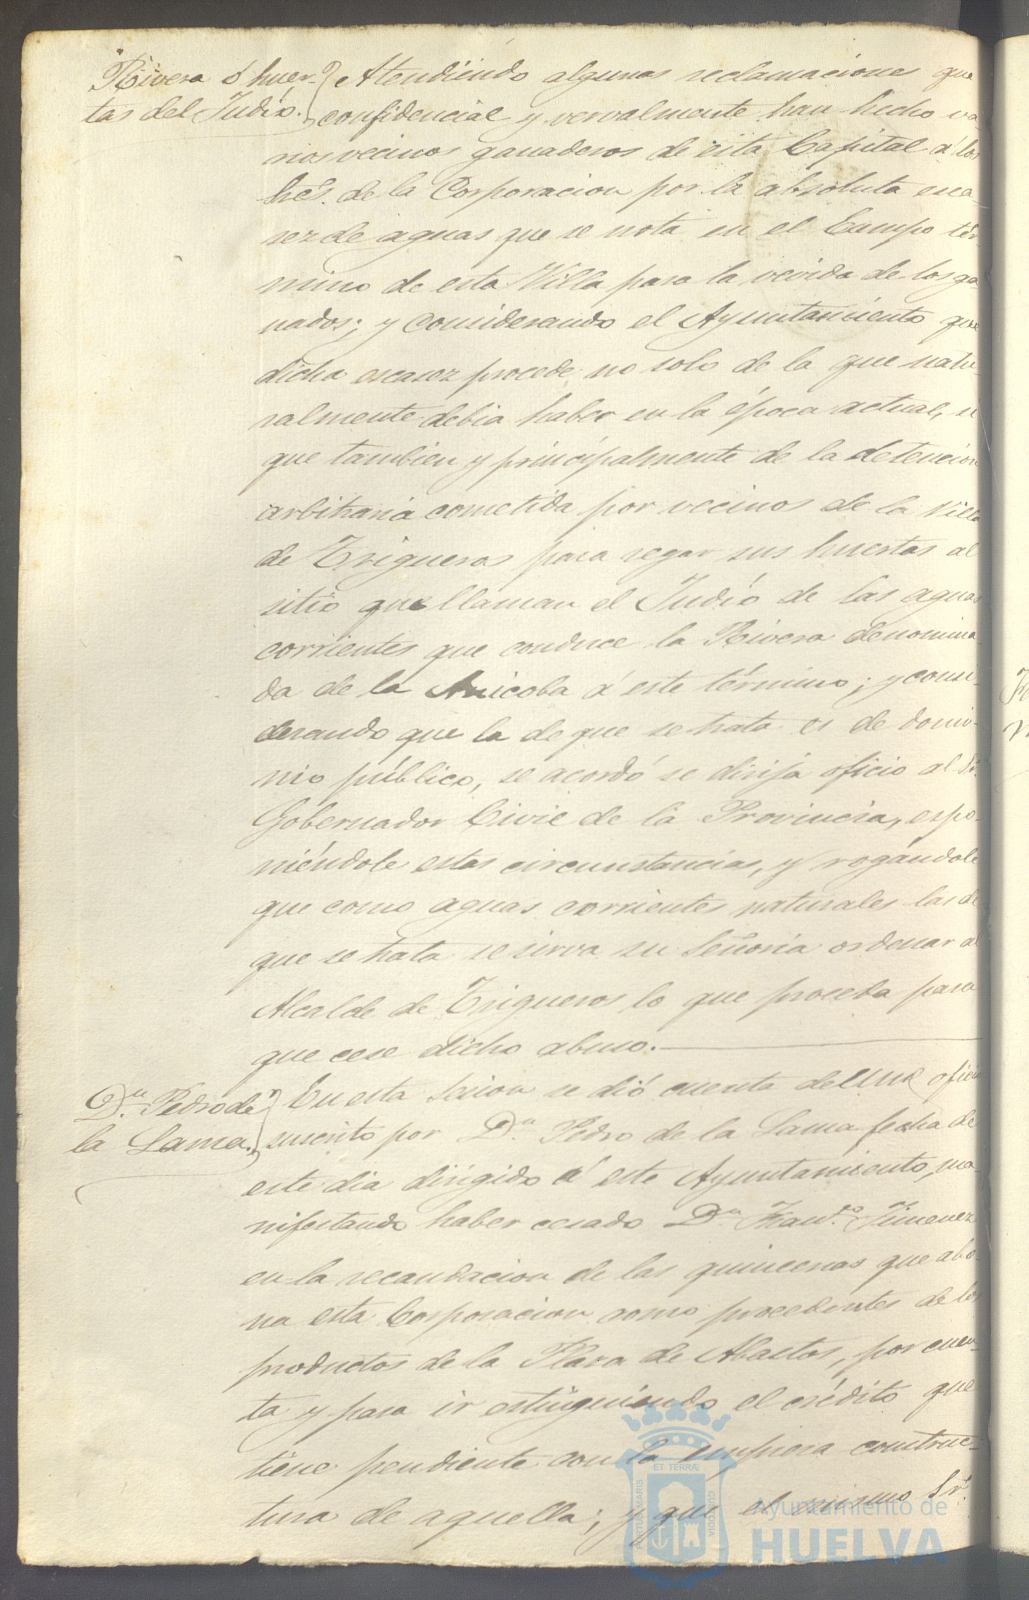 Rivera ó huer-
tas del Judío.
Atendiendo algunas reclamaciones que
confidencial y vervalmente han hecho va-
rios vecinos ganaderos de esta Capital á los
Sres. de la Corporacion por la absoluta esca-
sez de aguas que se nota en el Campo tér-
mino de esta Villa para la vevida de los ga
nados; y considerando el Ayuntamiento que
dicha escasez procede no solo de la que natu-
ralmente debia haber en la época actual, si
que tambien y principalmente de la detencion
arbitraria cometida por vecinos de la Villa
de Trigueros para regar sus huertas al
sitio que llaman el Judío de las aguas
corrientes que conduce la Rivera denomina
da de la Anicoba á este término; y consi-
derando que la de que se trata es de domi-
nio público, se acordó se dirija oficio al Sr.
Gobernador Civil de la Provincia, espo-
niéndole estas circunstancias, y rogándole
que como aguas corrientes naturales las de
que se trata se sirva su Señoría ordenar al
Alcalde de Trigueros lo que proceda para
que cese dicho abuso.
Dn. Pedro de
la Lama.
En esta sesion se dió cuenta de un oficio
suscrito por Dn. Pedro de la Lama fecha de
este dia dirigido á este Ayuntamiento, ma-
nifestando haber cesado Dn. Franco. Jimenez
en la recaudacion de las quincenas que abo
na esta Corporacion como procedentes de los
productos de la Plaza de Abastos, por cuen-
ta y para ir estinguiendo el crédito que
tiene pendiente con la empresa construc-
tura de aquella; y que el mismo Sr.
Ayuntamiento de
HUELVA